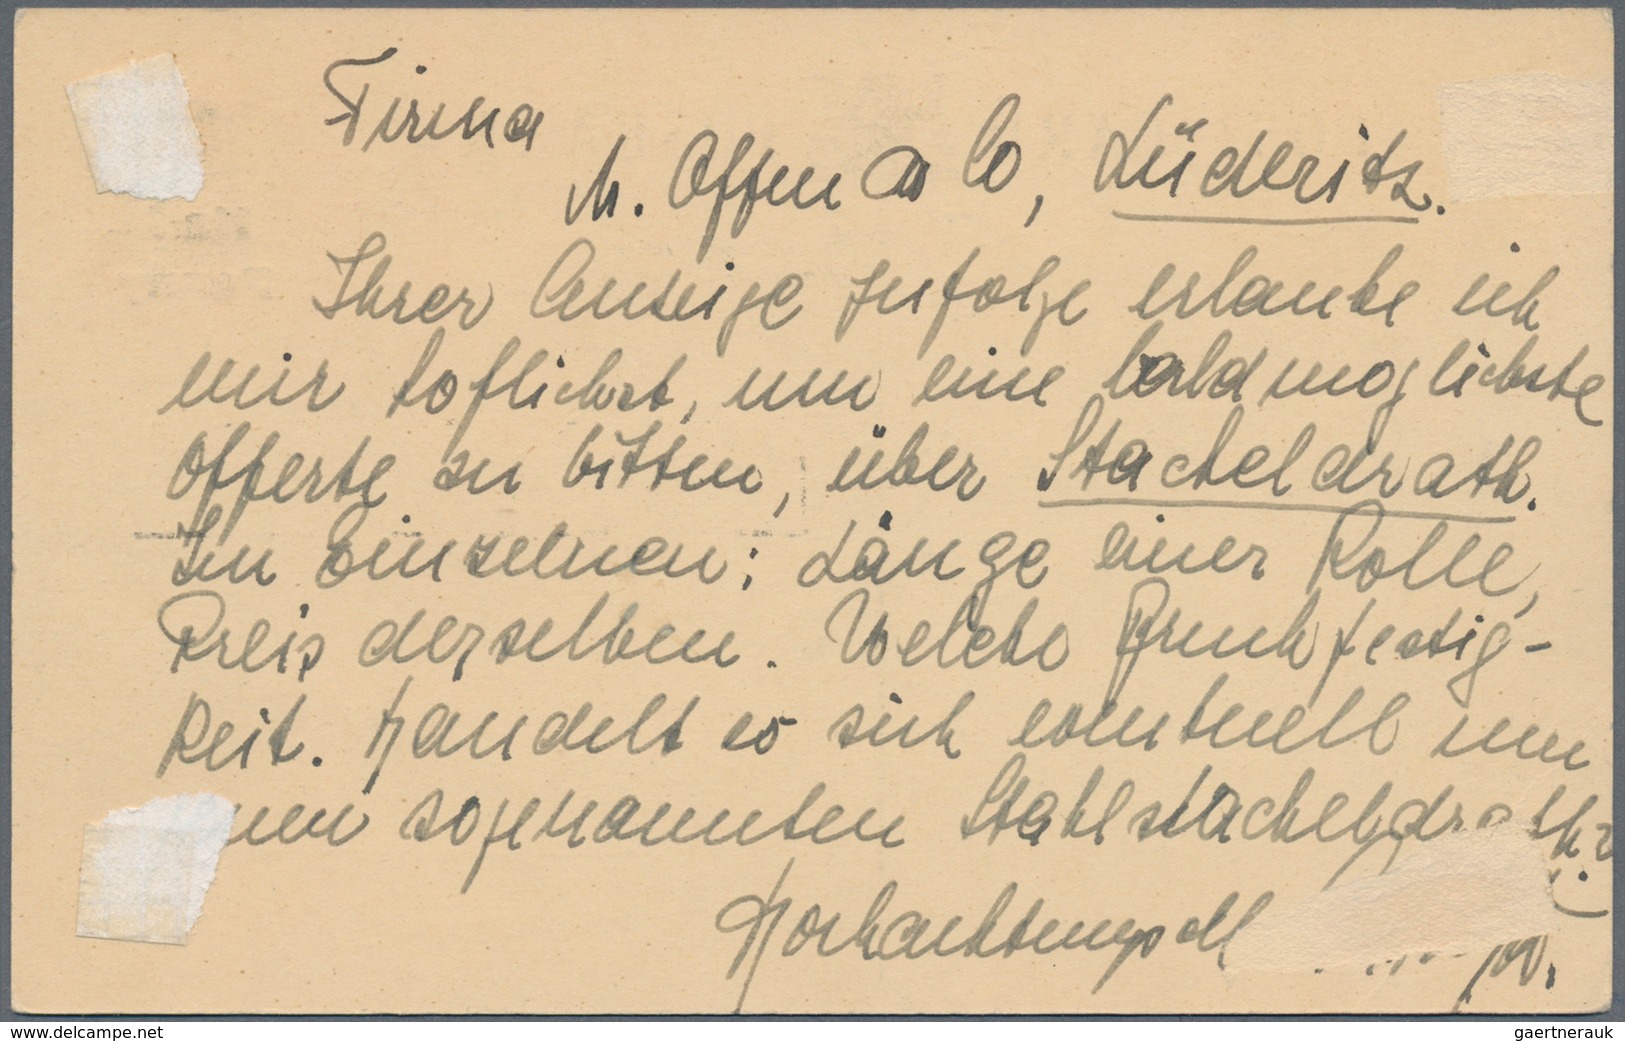 Firma
M. Offen & Co, Lüderitz.
Ihrer Anzeige zufolge erlaube ich
mir hoflichst, um eine baldmoglichste
Offerte zu bitten, über Stacheldrath.
Im Einzelnen: Länge einer Rolle,
Preis derselben. Welche Bruchfestig-
keit. Handelt es sich eventuell um
sogenannten Stahlstacheldrath?
Hochachtungsvoll
www.delcampe.net
gaertnerauk